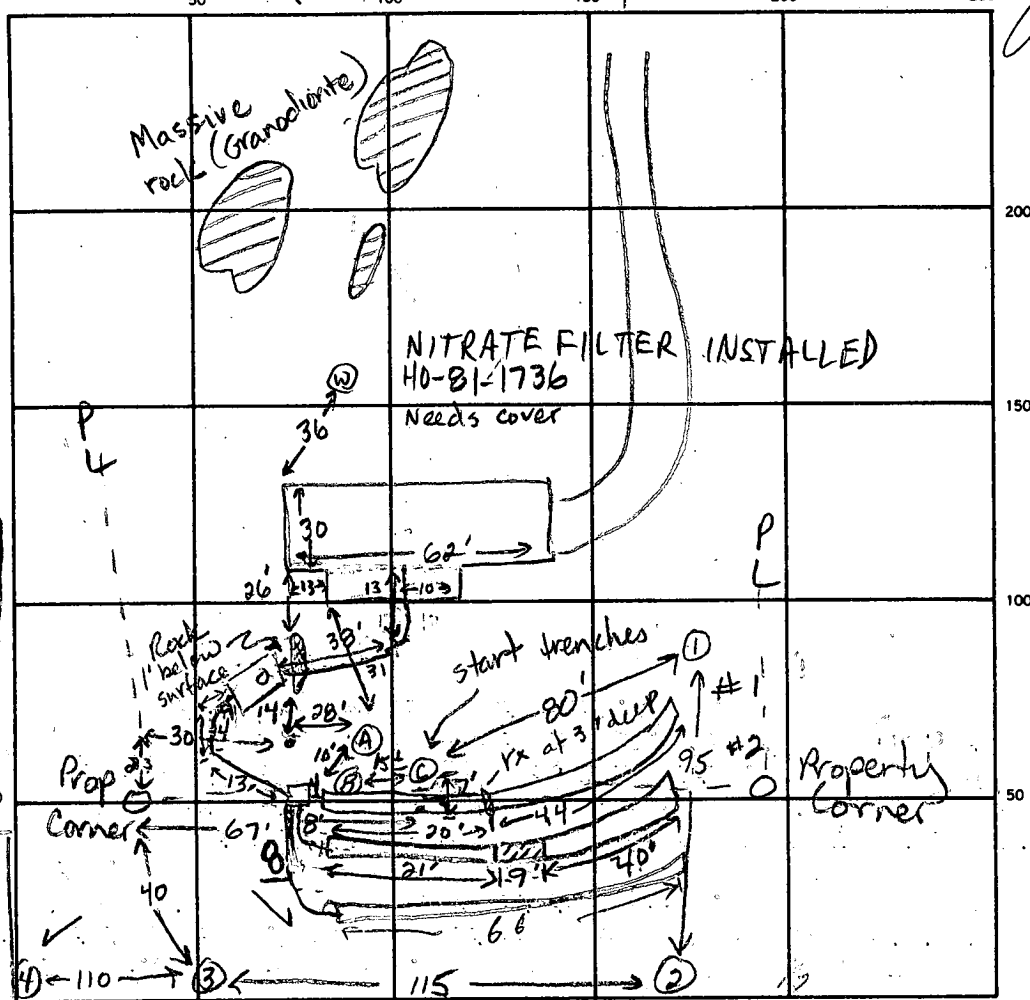 Massive
rock (Granodiorite)
200
NITRATE FILTER INSTALLED
HO-81-1736
Needs cover
W
36
150
P
L
30
62'
P
L
26'
13
13
10
100
Rock
1' below
surface
38'
31
start trenches
14
28'
80'
1
#1
30
A
rx at 3' deep
#2
10'
15
95
13
B
C
7'
Prop
Corner
Property
Corner
50
67'
8'
20'
44
21'
19'
40'
8
40
66
4
110
3
115
2